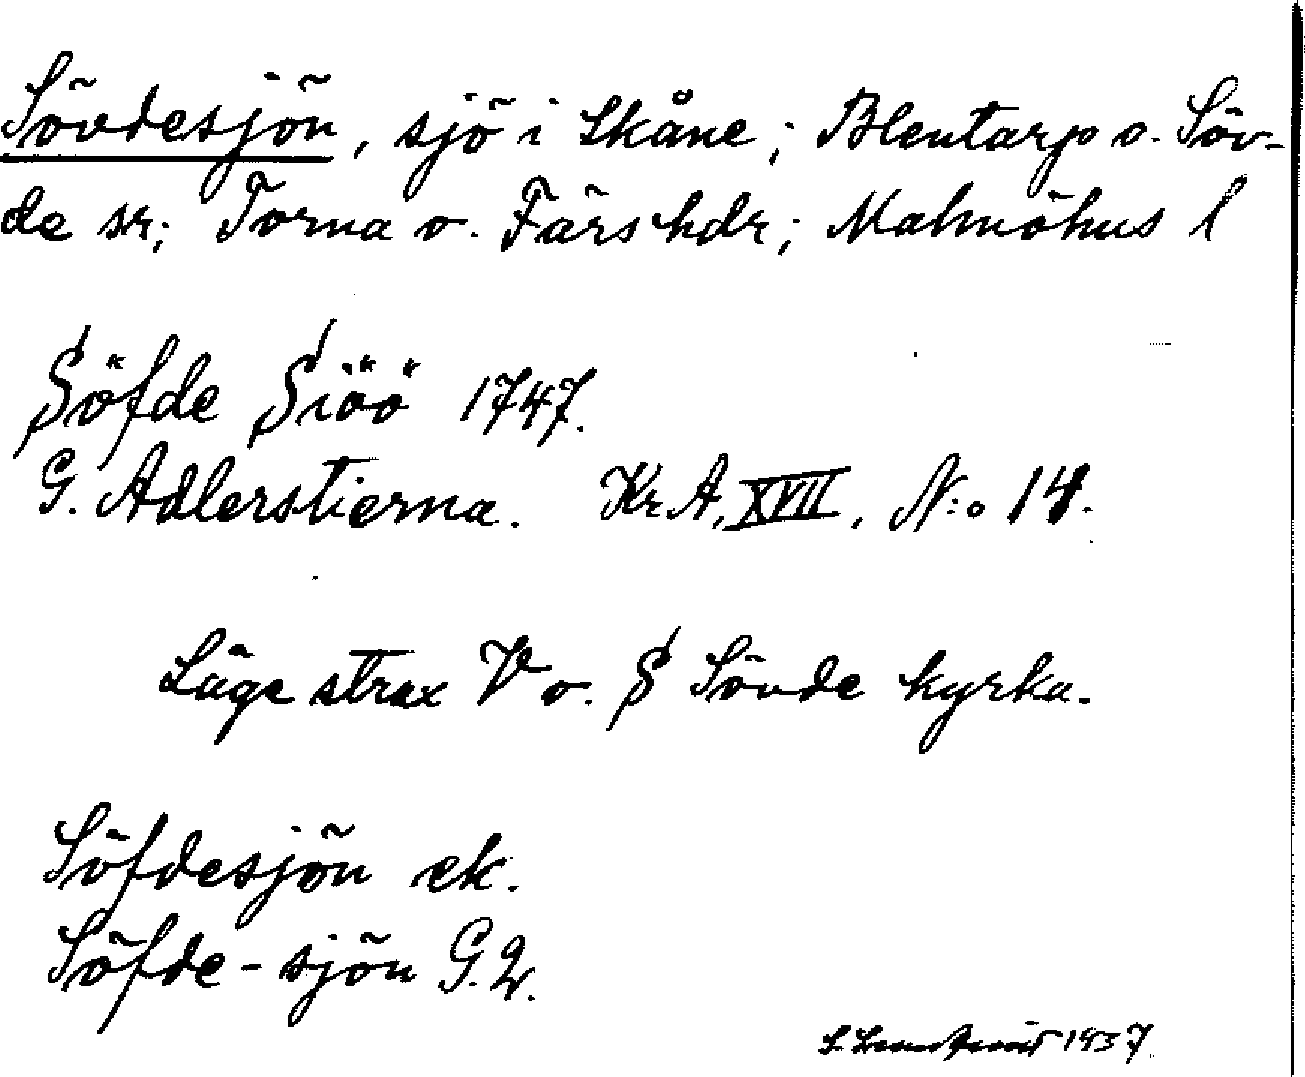 Sövdesjön, sjö i Skåne; Blentarp o. Söv-
de sr; Torna o. Färs hdr; Malmöhus l
Söfde Siöö 1747.
G. Adlerstierna. Kr.A, XVII, N:o 14.
Läge strax V o. S Sövde kyrka.
Söfdesjön ek.
Söfde-sjön G.2.
1937